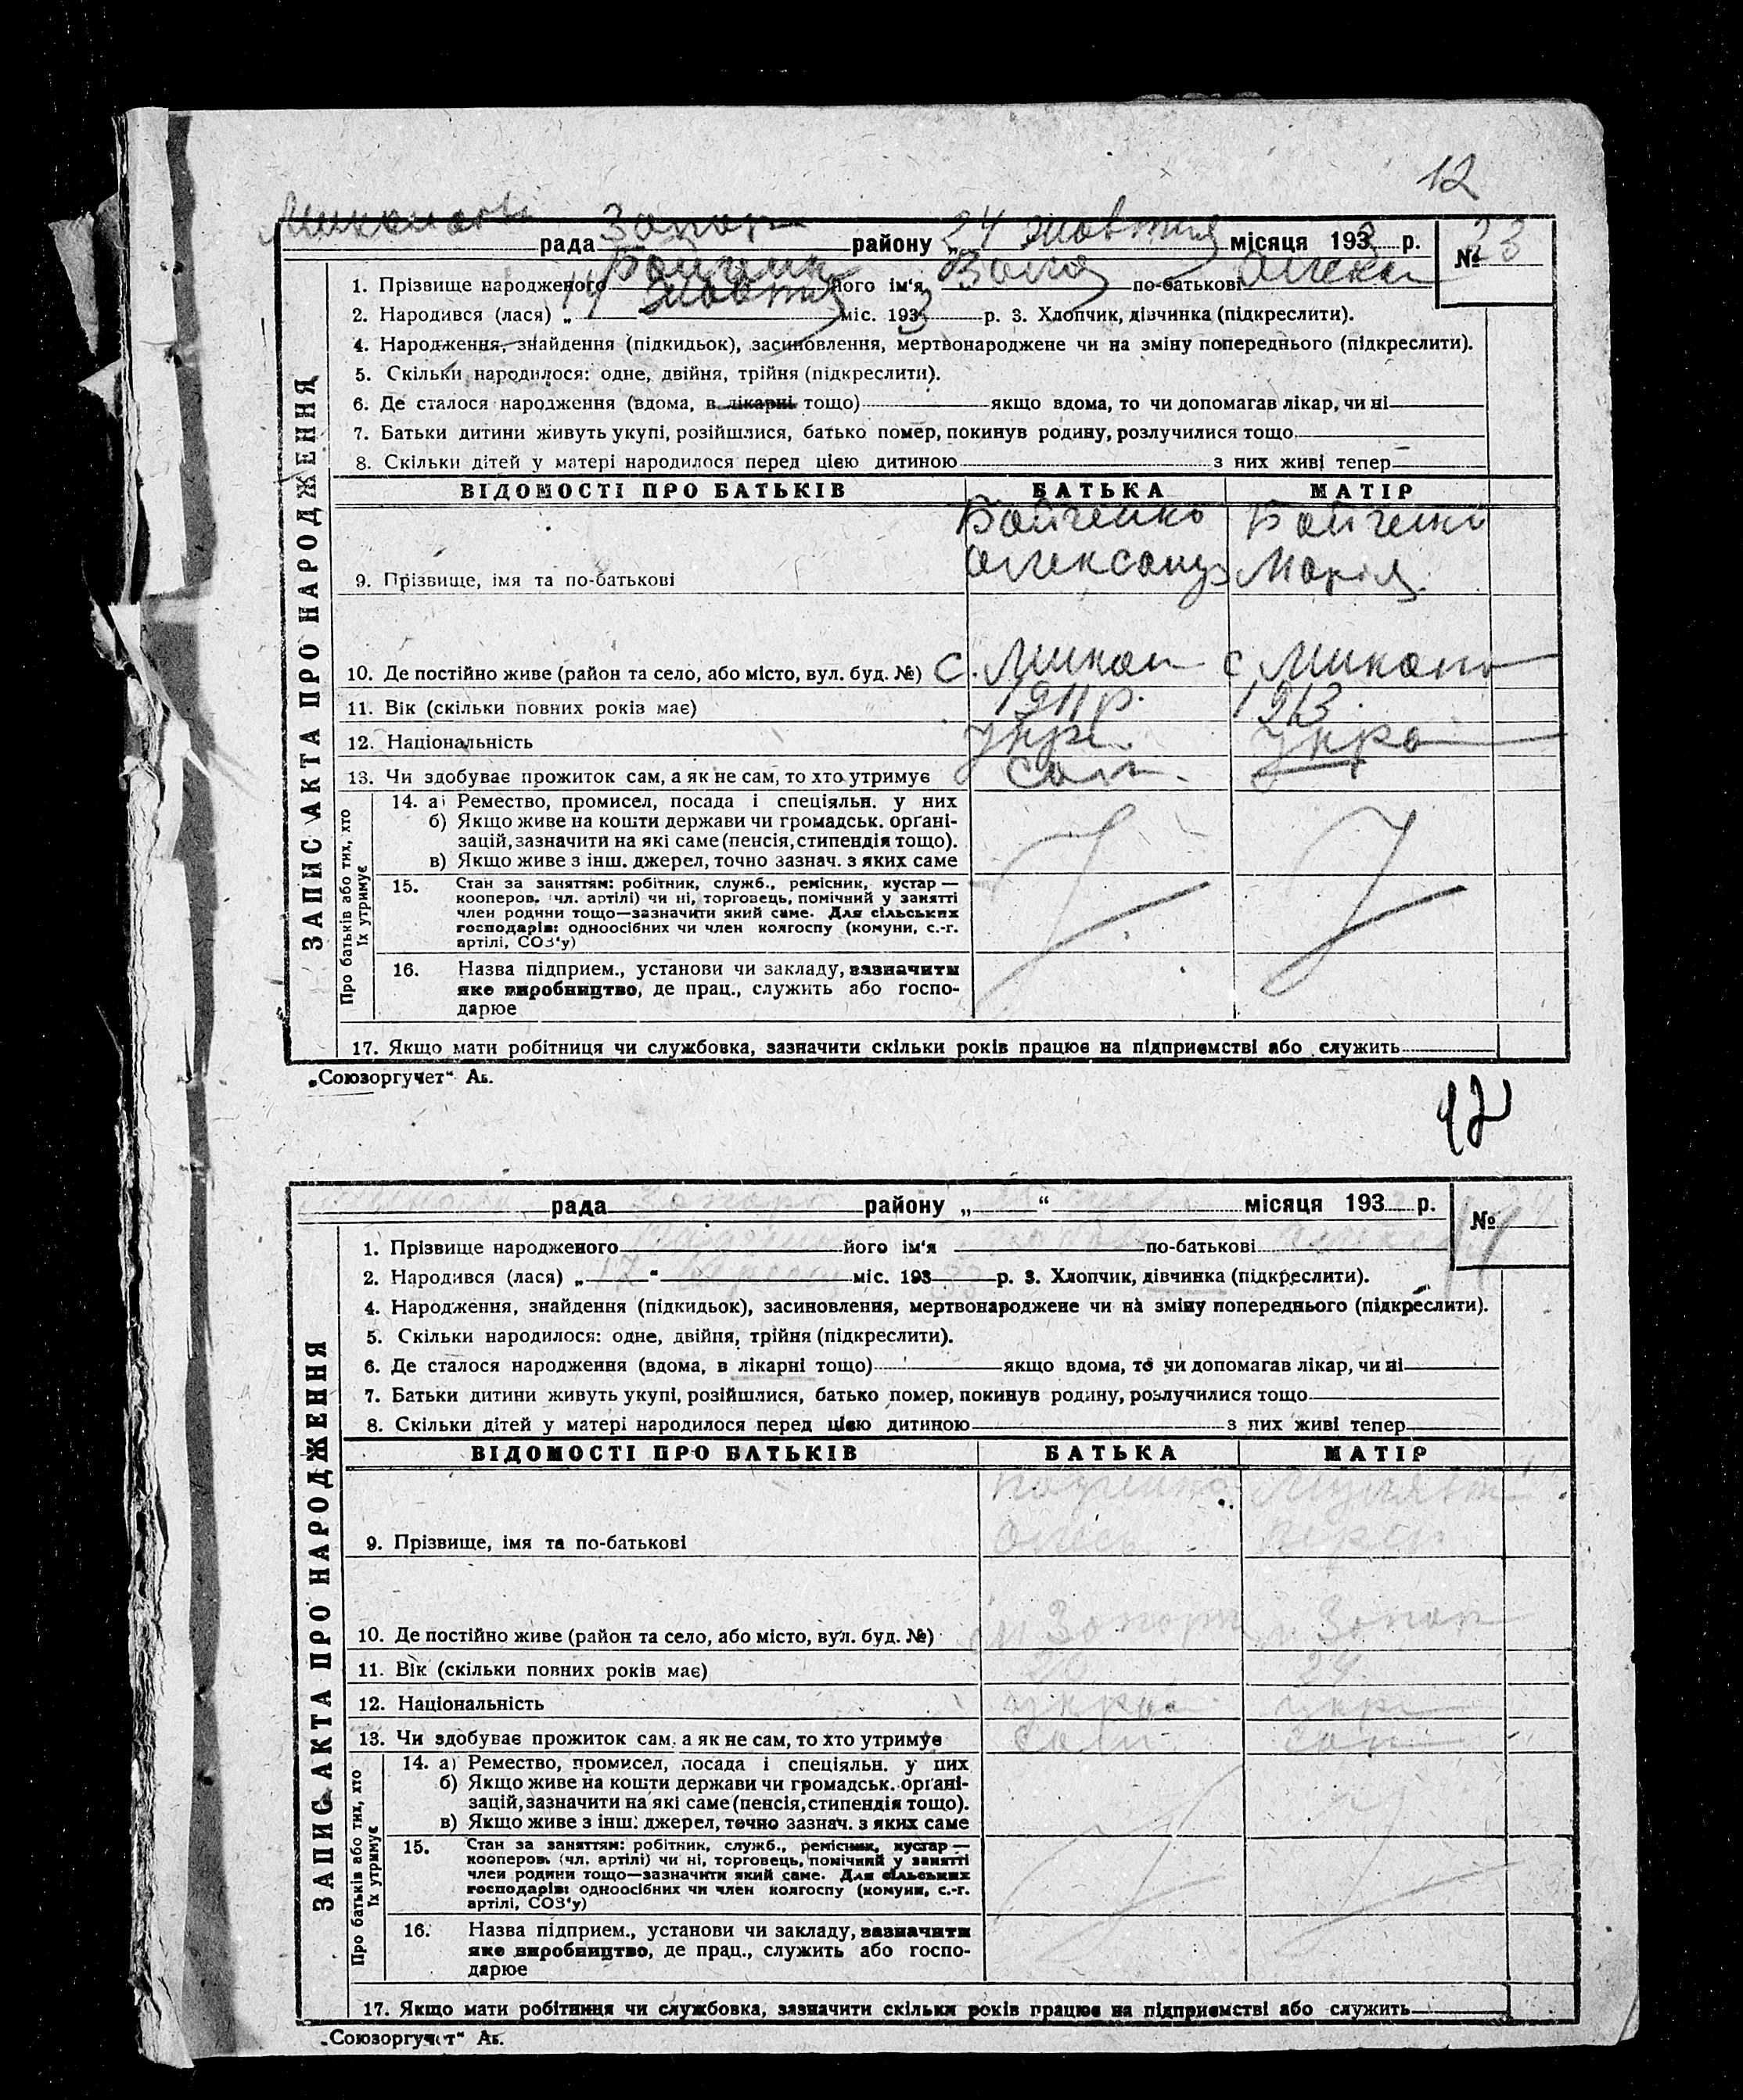 12
рада Запор району „24 жовтня місяця 1933 р. № 23
1. Прізвище народженого його ім'я по-батькові Олекс
2. Народився (лася) „14 жовтня міс. 1933 р. 3. Хлопчик, дівчинка (підкреслити).
4. Народження, знайдення (підкидьок), засиновлення, мертвонароджене чи на зміну попереднього (підкреслити).
5. Скільки народилося: одне, двійня, трійня (підкреслити).
6. Де сталося народження (вдома, в лікарні тощо) якщо вдома, то чи допомагав лікар, чи ні
7. Батьки дитини живуть укупі, розійшлися, батько помер, покинув родину, розлучилися тощо
8. Скільки дітей у матері народилося перед цією дитиною з них живі тепер
ЗАПИС АКТА ПРО НАРОДЖЕННЯ
ВІДОМОСТІ ПРО БАТЬКІВ БАТЬКА МАТІР
Бойченко Бойченко
9. Прізвище, імя та по-батькові Олександр Марія
10. Де постійно живе (район та село, або місто, вул. буд. №) с. Микол с. Микол
11. Вік (скільки повних років має) 1911 р. 1913
12. Національність укр укра
13. Чи здобуває прожиток сам, а як не сам, то хто утримує сам
Про батьків або тих, хто їх утримує
14. а) Ремество, промисел, посада і спеціяльн. у них
б) Якщо живе на кошти держави чи громадськ. орґані-
зацій, зазначити на які саме (пенсія, стипендія тощо).
в) Якщо живе з інш. джерел, точно зазнач. з яких саме
15. Стан за заняттям: робітник, служб., ремісник, кустар —
кооперов. (чл. артілі) чи ні, торговець, помічний у занятті
член родини тощо—зазначити який саме. Для сільських
господарів: одноосібних чи член колгоспу (комуни, с.-г.
артілі, СОЗ'у)
16. Назва підприєм., установи чи закладу, зазначити
яке виробництво, де прац., служить або госпо-
дарює
17. Якщо мати робітниця чи службовка, зазначити скільки років працює на підприємстві або служить
„Союзоргучет“ Ак.
12
рада Запор району „ “ місяця 193 р. №
1. Прізвище народженого його ім'я по-батькові
2. Народився (лася) „17“ вересня міс. 193 33 р. 3. Хлопчик, дівчинка (підкреслити).
4. Народження, знайдення (підкидьок), засиновлення, мертвонароджене чи на зміну попереднього (підкреслити).
5. Скільки народилося: одне, двійня, трійня (підкреслити).
6. Де сталося народження (вдома, в лікарні тощо) якщо вдома, то чи допомагав лікар, чи ні
7. Батьки дитини живуть укупі, розійшлися, батько помер, покинув родину, розлучилися тощо
8. Скільки дітей у матері народилося перед цією дитиною з них живі тепер
ЗАПИС АКТА ПРО НАРОДЖЕННЯ
ВІДОМОСТІ ПРО БАТЬКІВ БАТЬКА МАТІР
9. Прізвище, імя та по-батькові
10. Де постійно живе (район та село, або місто, вул. буд. №) м Запор м. Запор
11. Вік (скільки повних років має) 24
12. Національність укра укр
13. Чи здобуває прожиток сам, а як не сам, то хто утримує сам сам
Про батьків або тих, хто їх утримує
14. а) Ремество, промисел, посада і спеціяльн. у них
б) Якщо живе на кошти держави чи громадськ. орґані-
зацій, зазначити на які саме (пенсія, стипендія тощо).
в) Якщо живе з інш. джерел, точно зазнач. з яких саме
15. Стан за заняттям: робітник, служб., ремісник, кустар —
кооперов. (чл. артілі) чи ні, торговець, помічний у занятті
член родини тощо—зазначити який саме. Для сільських
господарів: одноосібних чи член колгоспу (комуни, с.-г.
артілі, СОЗ'у)
16. Назва підприєм., установи чи закладу, зазначити
яке виробництво, де прац., служить або госпо-
дарює
17. Якщо мати робітниця чи службовка, зазначити скільки років працює на підприємстві або служить
„Союзоргучет“ Ак.